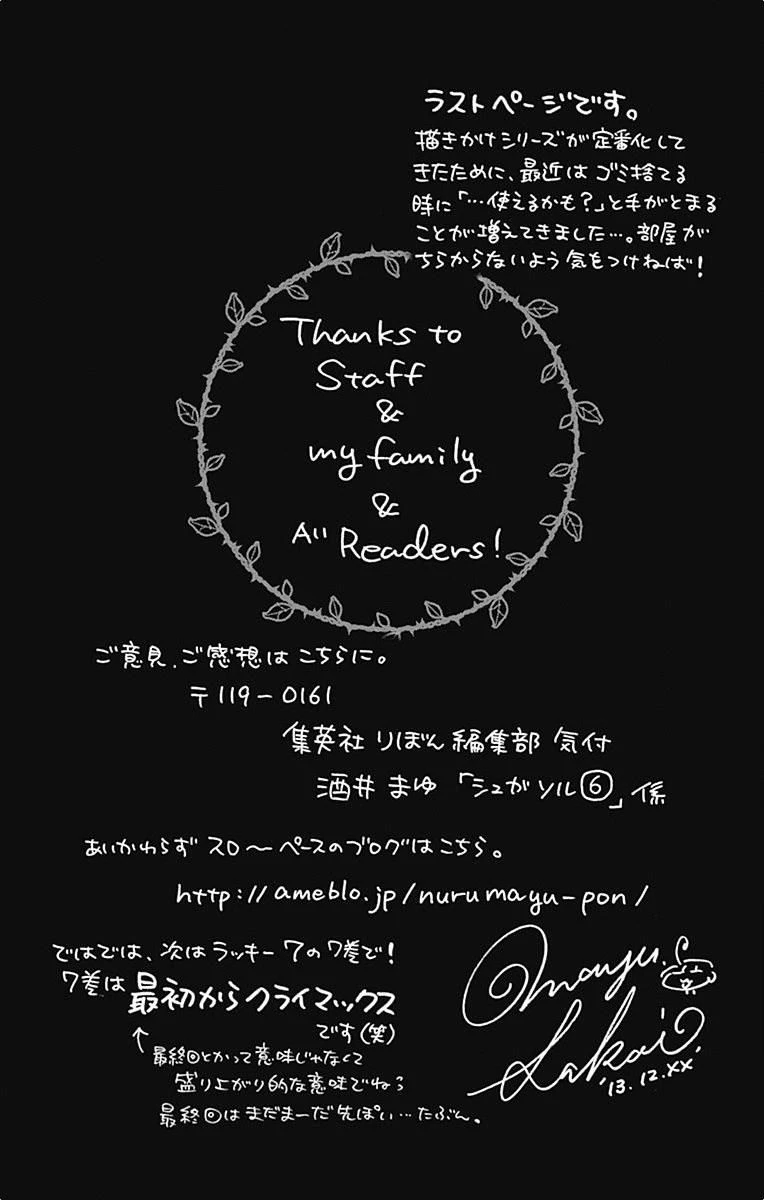 ラストページです。
描きかけシリーズが定番化して
きたために、最近はゴミ捨てる
時に「…使えるかも?」と手がとまる
ことが増えてきました…。部屋が
ちらからないよう気をつけねば!
Thanks to
Staff
&
my family
&
All Readers!
ご意見、ご感想はこちらに。
〒119-0161
集英社 りぼん編集部 気付
酒井まゆ「シュガソル⑥」係
あいかわらずスロ〜ペースのブログはこちら。
http://ameblo.jp/nurumayu-pon/
ではでは、次はラッキー7の7巻で!
7巻は最初からクライマックス
です(笑)
↑最終回とかって意味じゃなくて
盛り上がり的な意味でね〜
最終回はまだまーだ先ぽい…たぶん。
Mayu.
Sakai
'13.12.XX